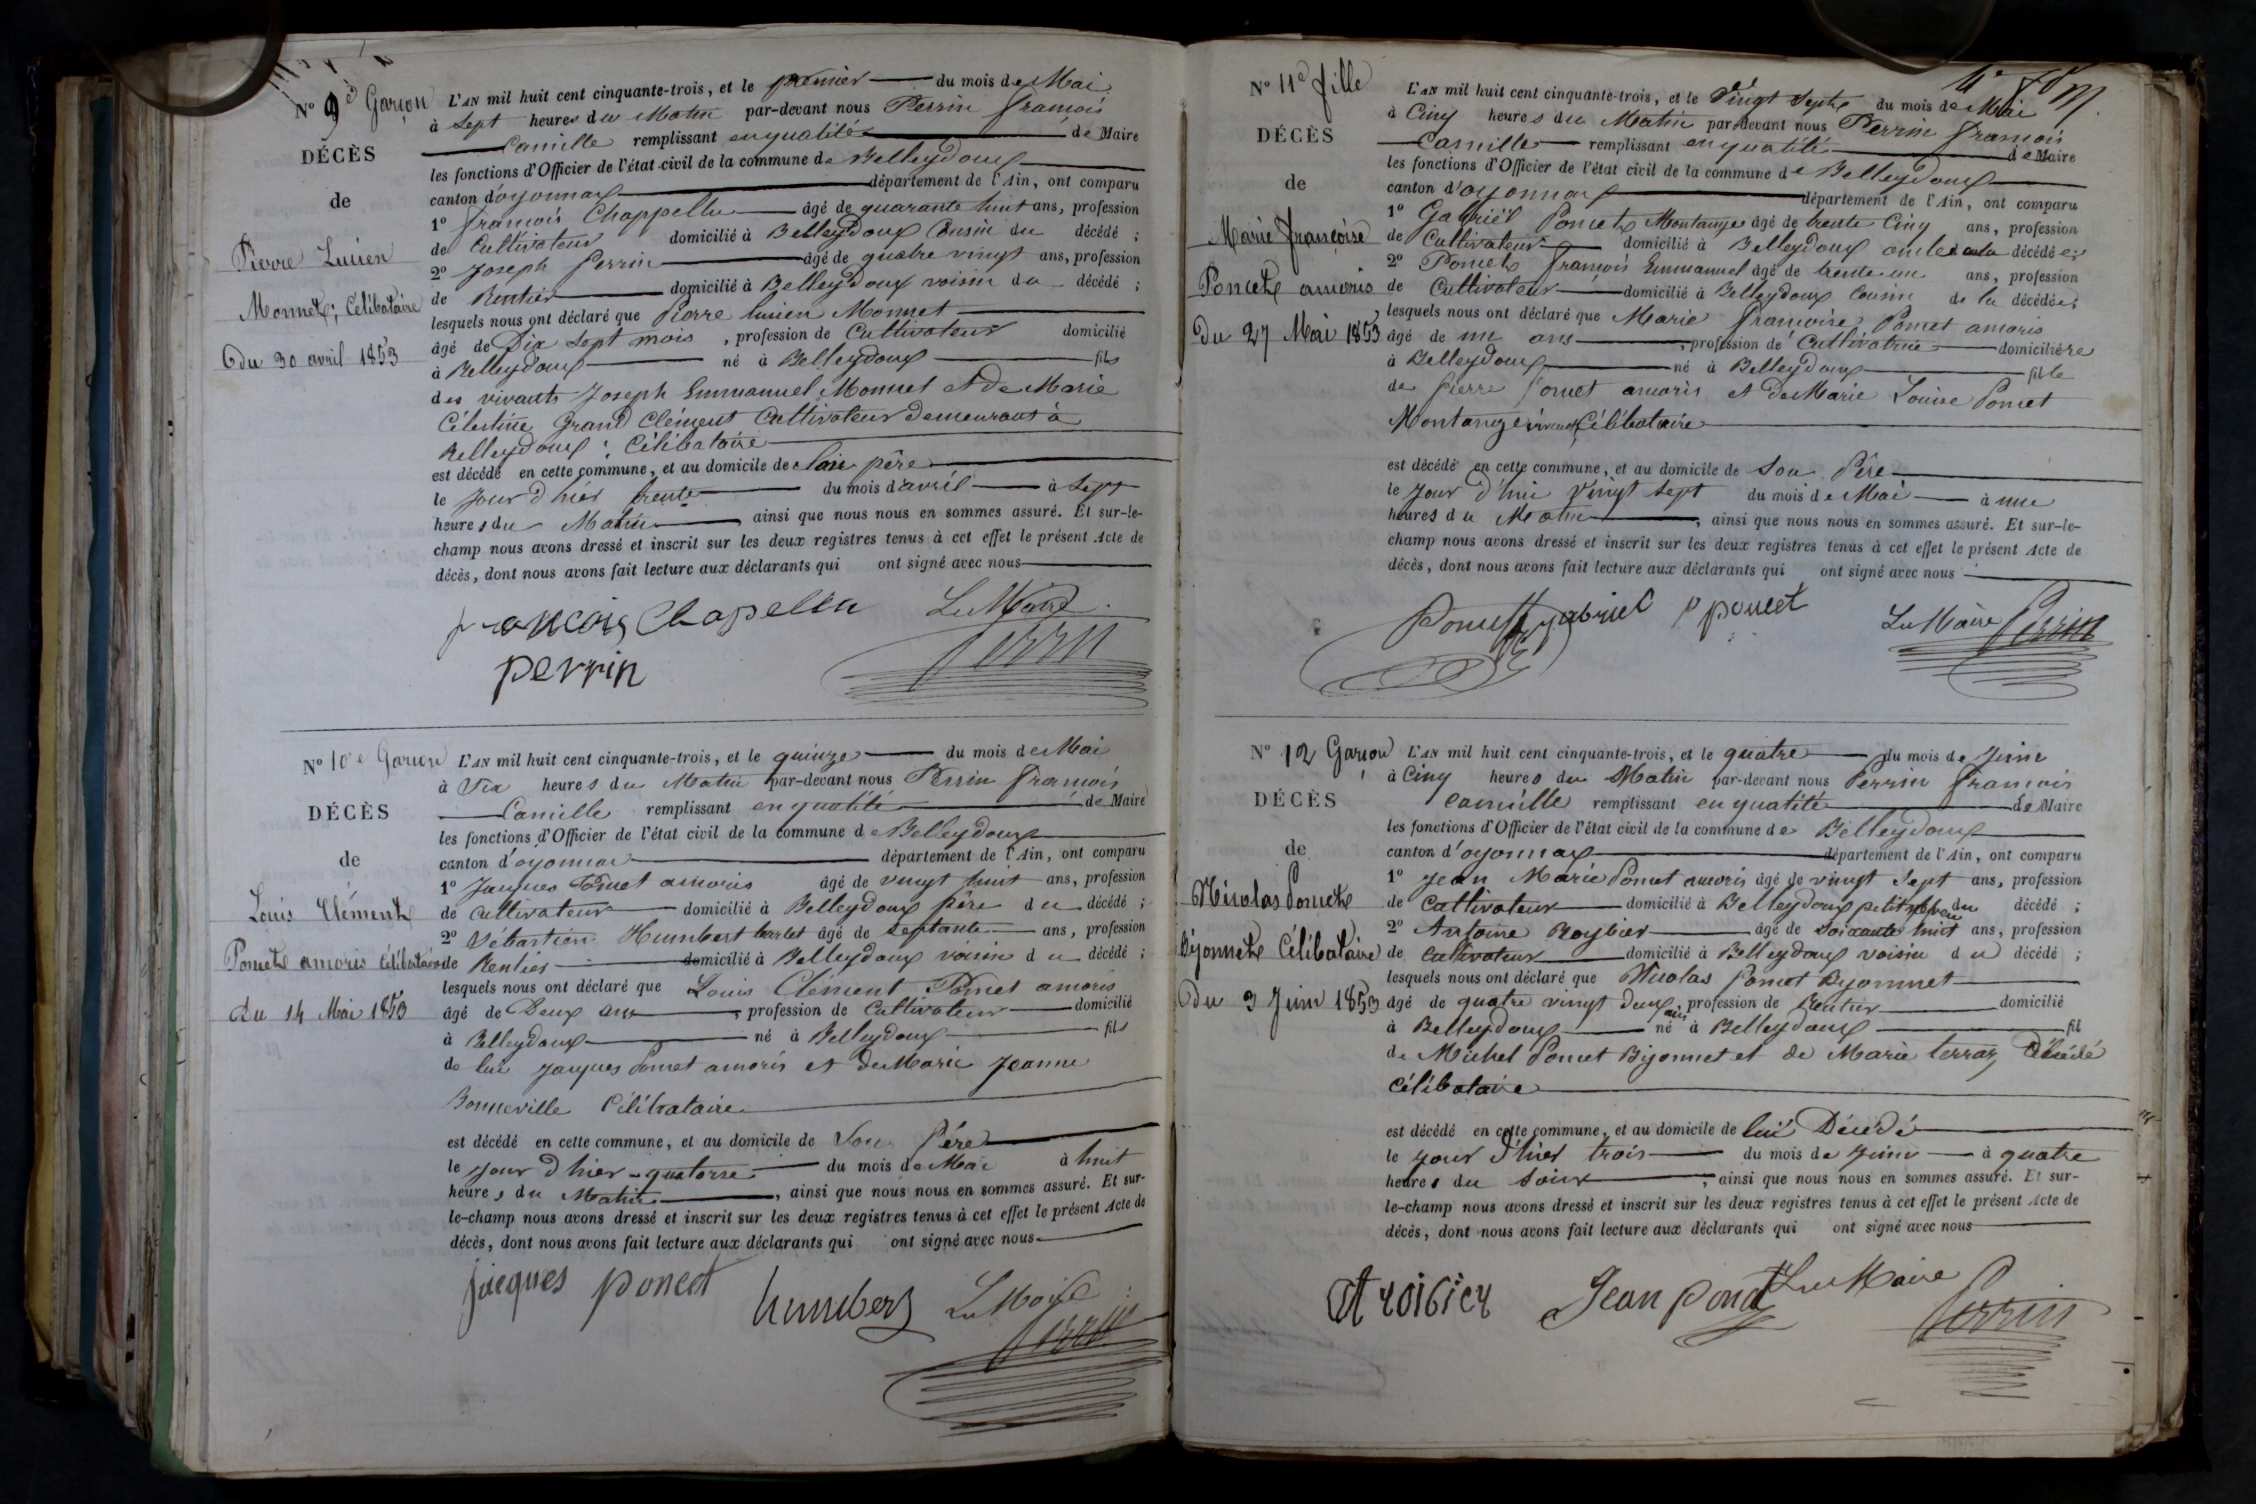 N° 9e Garçon
DÉCÈS
de
Pierre Lucien
Monnet, Célibataire
du 30 avril 1853
L'AN mil huit cent cinquante-trois, et le premier du mois de Mai
à Sept heures du Matin par-devant nous Perrin françois
Camille remplissant en qualité de Maire
les fonctions d'Officier de l'état civil de la commune de Belleydoux
canton d'oyonnax département de l'Ain, ont comparu
1° françois Chappellu âgé de quarante huit ans, profession
de Cultivateur domicilié à Belleydoux Cousin du décédé ;
2° Joseph Perrin âgé de quatre vingt ans, profession
de Rentier domicilié à Belleydoux voisin du décédé ;
lesquels nous ont déclaré que Pierre lucien Monnet
âgé de Dix Sept mois, profession de Cultivateur domicilié
à Belleydoux né à Belleydoux fils
des vivants Joseph Emmanuel Monnet et de Marie
Célestine Grand Clément Cultivateur demeurant à
Belleydoux ; Célibataire
est décédé en cette commune, et au domicile de Son père
le jour d'hier trente du mois d'avril à Sept
heures du Matin, ainsi que nous nous en sommes assuré. Et sur-le-
champ nous avons dressé et inscrit sur les deux registres tenus à cet effet le présent Acte de
décès, dont nous avons fait lecture aux déclarants qui ont signé avec nous
françois Chapellu Le Maire
perrin Perrin
N° 10e Garçon
DÉCÈS
de
Louis Clément
Poncet amoris Célibataire
du 14 Mai 1853
L'AN mil huit cent cinquante-trois, et le quinze du mois de Mai
à Six heures du Matin par-devant nous Perrin françois
Camille remplissant en qualité de Maire
les fonctions d'Officier de l'état civil de la commune de Belleydoux
canton d'oyonnax département de l'Ain, ont comparu
1° Jacques Poncet amoris âgé de vingt huit ans, profession
de Cultivateur domicilié à Belleydoux père du décédé ;
2° Sébastien Humbert âgé de Septante ans, profession
de Rentier domicilié à Belleydoux voisin du décédé ;
lesquels nous ont déclaré que Louis Clément Poncet amoris
âgé de Deux ans, profession de Cultivateur domicilié
à Belleydoux né à Belleydoux fils
de lui Jacques Poncet amoris et de Marie Jeanne
Bonneville Célibataire
est décédé en cette commune, et au domicile de Son Père
le jour d'hier quatorse du mois de Mai à huit
heures du Matin, ainsi que nous nous en sommes assuré. Et sur-
le-champ nous avons dressé et inscrit sur les deux registres tenus à cet effet le présent Acte de
décès, dont nous avons fait lecture aux déclarants qui ont signé avec nous
jacques poncet humbert Le Maire
Perrin
N° 11e fille
DÉCÈS
de
Marie françoise
Poncet amoris
du 27 Mai 1853
L'AN mil huit cent cinquante-trois, et le Vingt Sept du mois de Mai
à Cinq heures du Matin par-devant nous Perrin françois
Camille remplissant en qualité de Maire
les fonctions d'Officier de l'état civil de la commune de Belleydoux
canton d'oyonnax département de l'Ain, ont comparu
1° Gabriël Poncet Montange âgé de trente Cinq ans, profession
de Cultivateur domicilié à Belleydoux oncle de la décédée ;
2° Poncet françois Emmanuel âgé de trente un ans, profession
de Cultivateur domicilié à Belleydoux Cousin de la décédée ;
lesquels nous ont déclaré que Marie françoise Poncet amoris
âgé de un ans, profession de Cultivatrice domiciliére
à Belleydoux né à Belleydoux fille
de Pierre Poncet amoris et de Marie Louise Poncet
Montange vivants Célibataire
est décédé en cette commune, et au domicile de Son Père
le jour d'hui Vingt Sept du mois de Mai à une
heures du Matin, ainsi que nous nous en sommes assuré. Et sur-le-
champ nous avons dressé et inscrit sur les deux registres tenus à cet effet le présent Acte de
décès, dont nous avons fait lecture aux déclarants qui ont signé avec nous
Poncet gabriel p poncet Le Maire Perrin
N° 12 Garçon
DÉCÈS
de
Nicolas Poncet
Bijonnet Célibataire
du 3 Juin 1853
L'AN mil huit cent cinquante-trois, et le quatre du mois de Juin
à Cinq heures du Matin par-devant nous Perrin françois
Camille remplissant en qualité de Maire
les fonctions d'Officier de l'état civil de la commune de Belleydoux
canton d'oyonnax département de l'Ain, ont comparu
1° Jean Marie Poncet amoris âgé de vingt Sept ans, profession
de Cultivateur domicilié à Belleydoux petit neveu du décédé ;
2° Antoine Roybier âgé de Soixante huit ans, profession
de Cultivateur domicilié à Belleydoux voisin du décédé ;
lesquels nous ont déclaré que Nicolas Poncet Byonnnet
âgé de quatre vingt deux ans, profession de Rentier domicilié
à Belleydoux né à Belleydoux fil
de Michel Poncet Bijonnet et de Marie terraz Décédé
Célibataire
est décédé en cette commune, et au domicile de lui Décédé
le jour d'hier trois du mois de Juin à quatre
heures du Soir, ainsi que nous nous en sommes assuré. Et sur-
le-champ nous avons dressé et inscrit sur les deux registres tenus à cet effet le présent Acte de
décès, dont nous avons fait lecture aux déclarants qui ont signé avec nous
A roibier Jean ponct Le Maire
Perrin